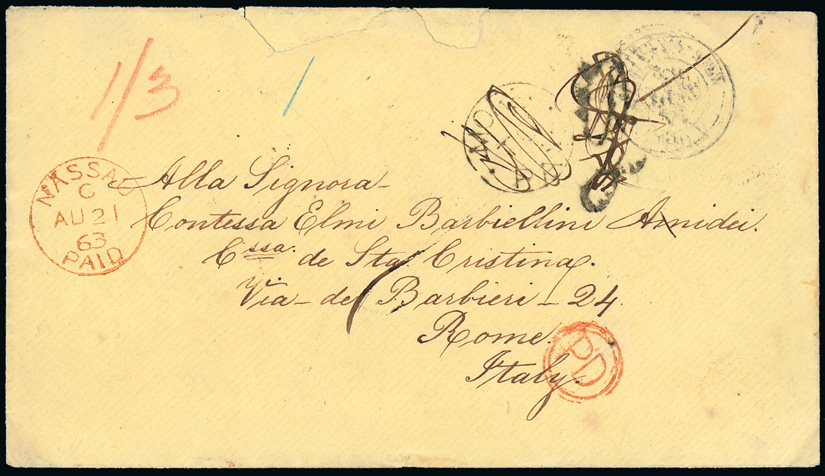 1/3
NASSAU
C
AU 21
63
PAID
Alla Signora
Contessa Elmi Barbiellini Amidei.
C.ssa. de Sta. Cristina.
Via de Barbieri - 24.
Rome.
Italy.
PD